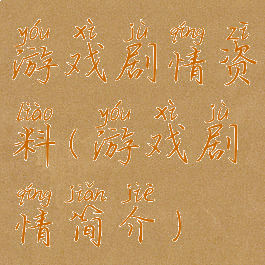 yóu xì jù qíng zī
游戏剧情资
liào yóu xì jù
料(游戏剧
qíng jiǎn jiè
情简介)